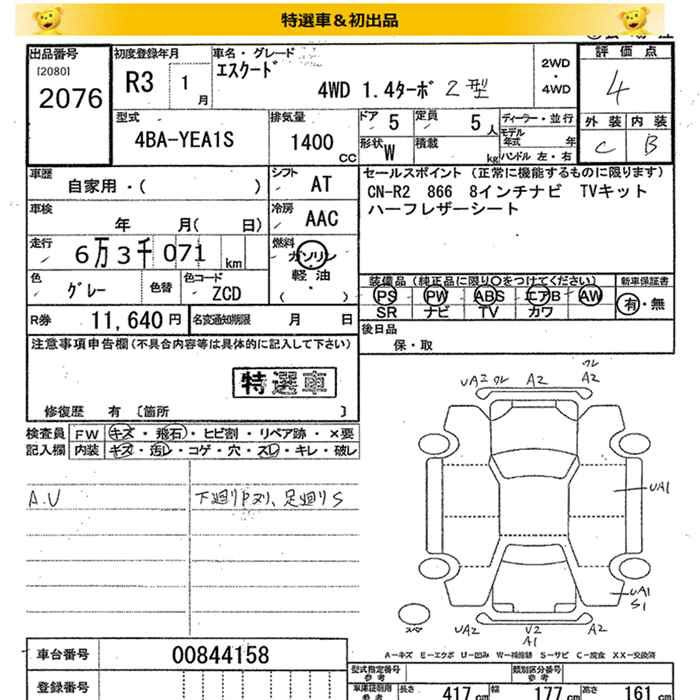 特選車＆初出品
出品番号
[2080]
2076
初度登録年月
R3
1
月
車名・グレード
エスクード
4WD 1.4ターボ 2型
2WD
・
4WD
評価点
4
外装 内装
C B
型式
4BA-YEA1S
排気量
1400
CC
ドア
5
定員
5
人
形状
W
積載
kg
ディーラー・並行
モデル
年式 年
ハンドル 左・右
車歴
自家用・( )
シフト
AT
車検
年 月( 日)
冷房
AAC
走行
6万3千071
km
燃料
ガソリン
軽・油
( )
色
グレー
色替
色コード
ZCD
セールスポイント (正常に機能するものに限ります)
CN-R2 866 8インチナビ TVキット
ハーフレザーシート
装備品 (純正品に限り〇をつけてください)
PS PW ABS エアB AW
SR ナビ TV カワ
新車保証書
有・無
R券
11,640円
名変通知期限 月 日
後日品
保・取
注意事項申告欄(不具合内容等は具体的に記入して下さい)
特選車
修復歴 有 [箇所 ]
検査員
記入欄
FW キズ・飛石・ヒビ割・リペア跡・×要
内装 キズ・汚レ・コゲ・穴・スレ・キレ・破レ
A.U
下廻りPヌリ、足廻りS
UAエ クレ A2 クレ
A2
UA1
UA1
S1
スペア
UA2 U2
A1 A2
A－キズ E－エクボ U－凹み W－補修跡 S－サビ C－腐食 XX－交換済
車台番号
00844158
登録番号
型式指定番号
参考
類別区分番号
参考
車庫証明用
参考
長さ 417cm
幅 177cm
高さ 161cm